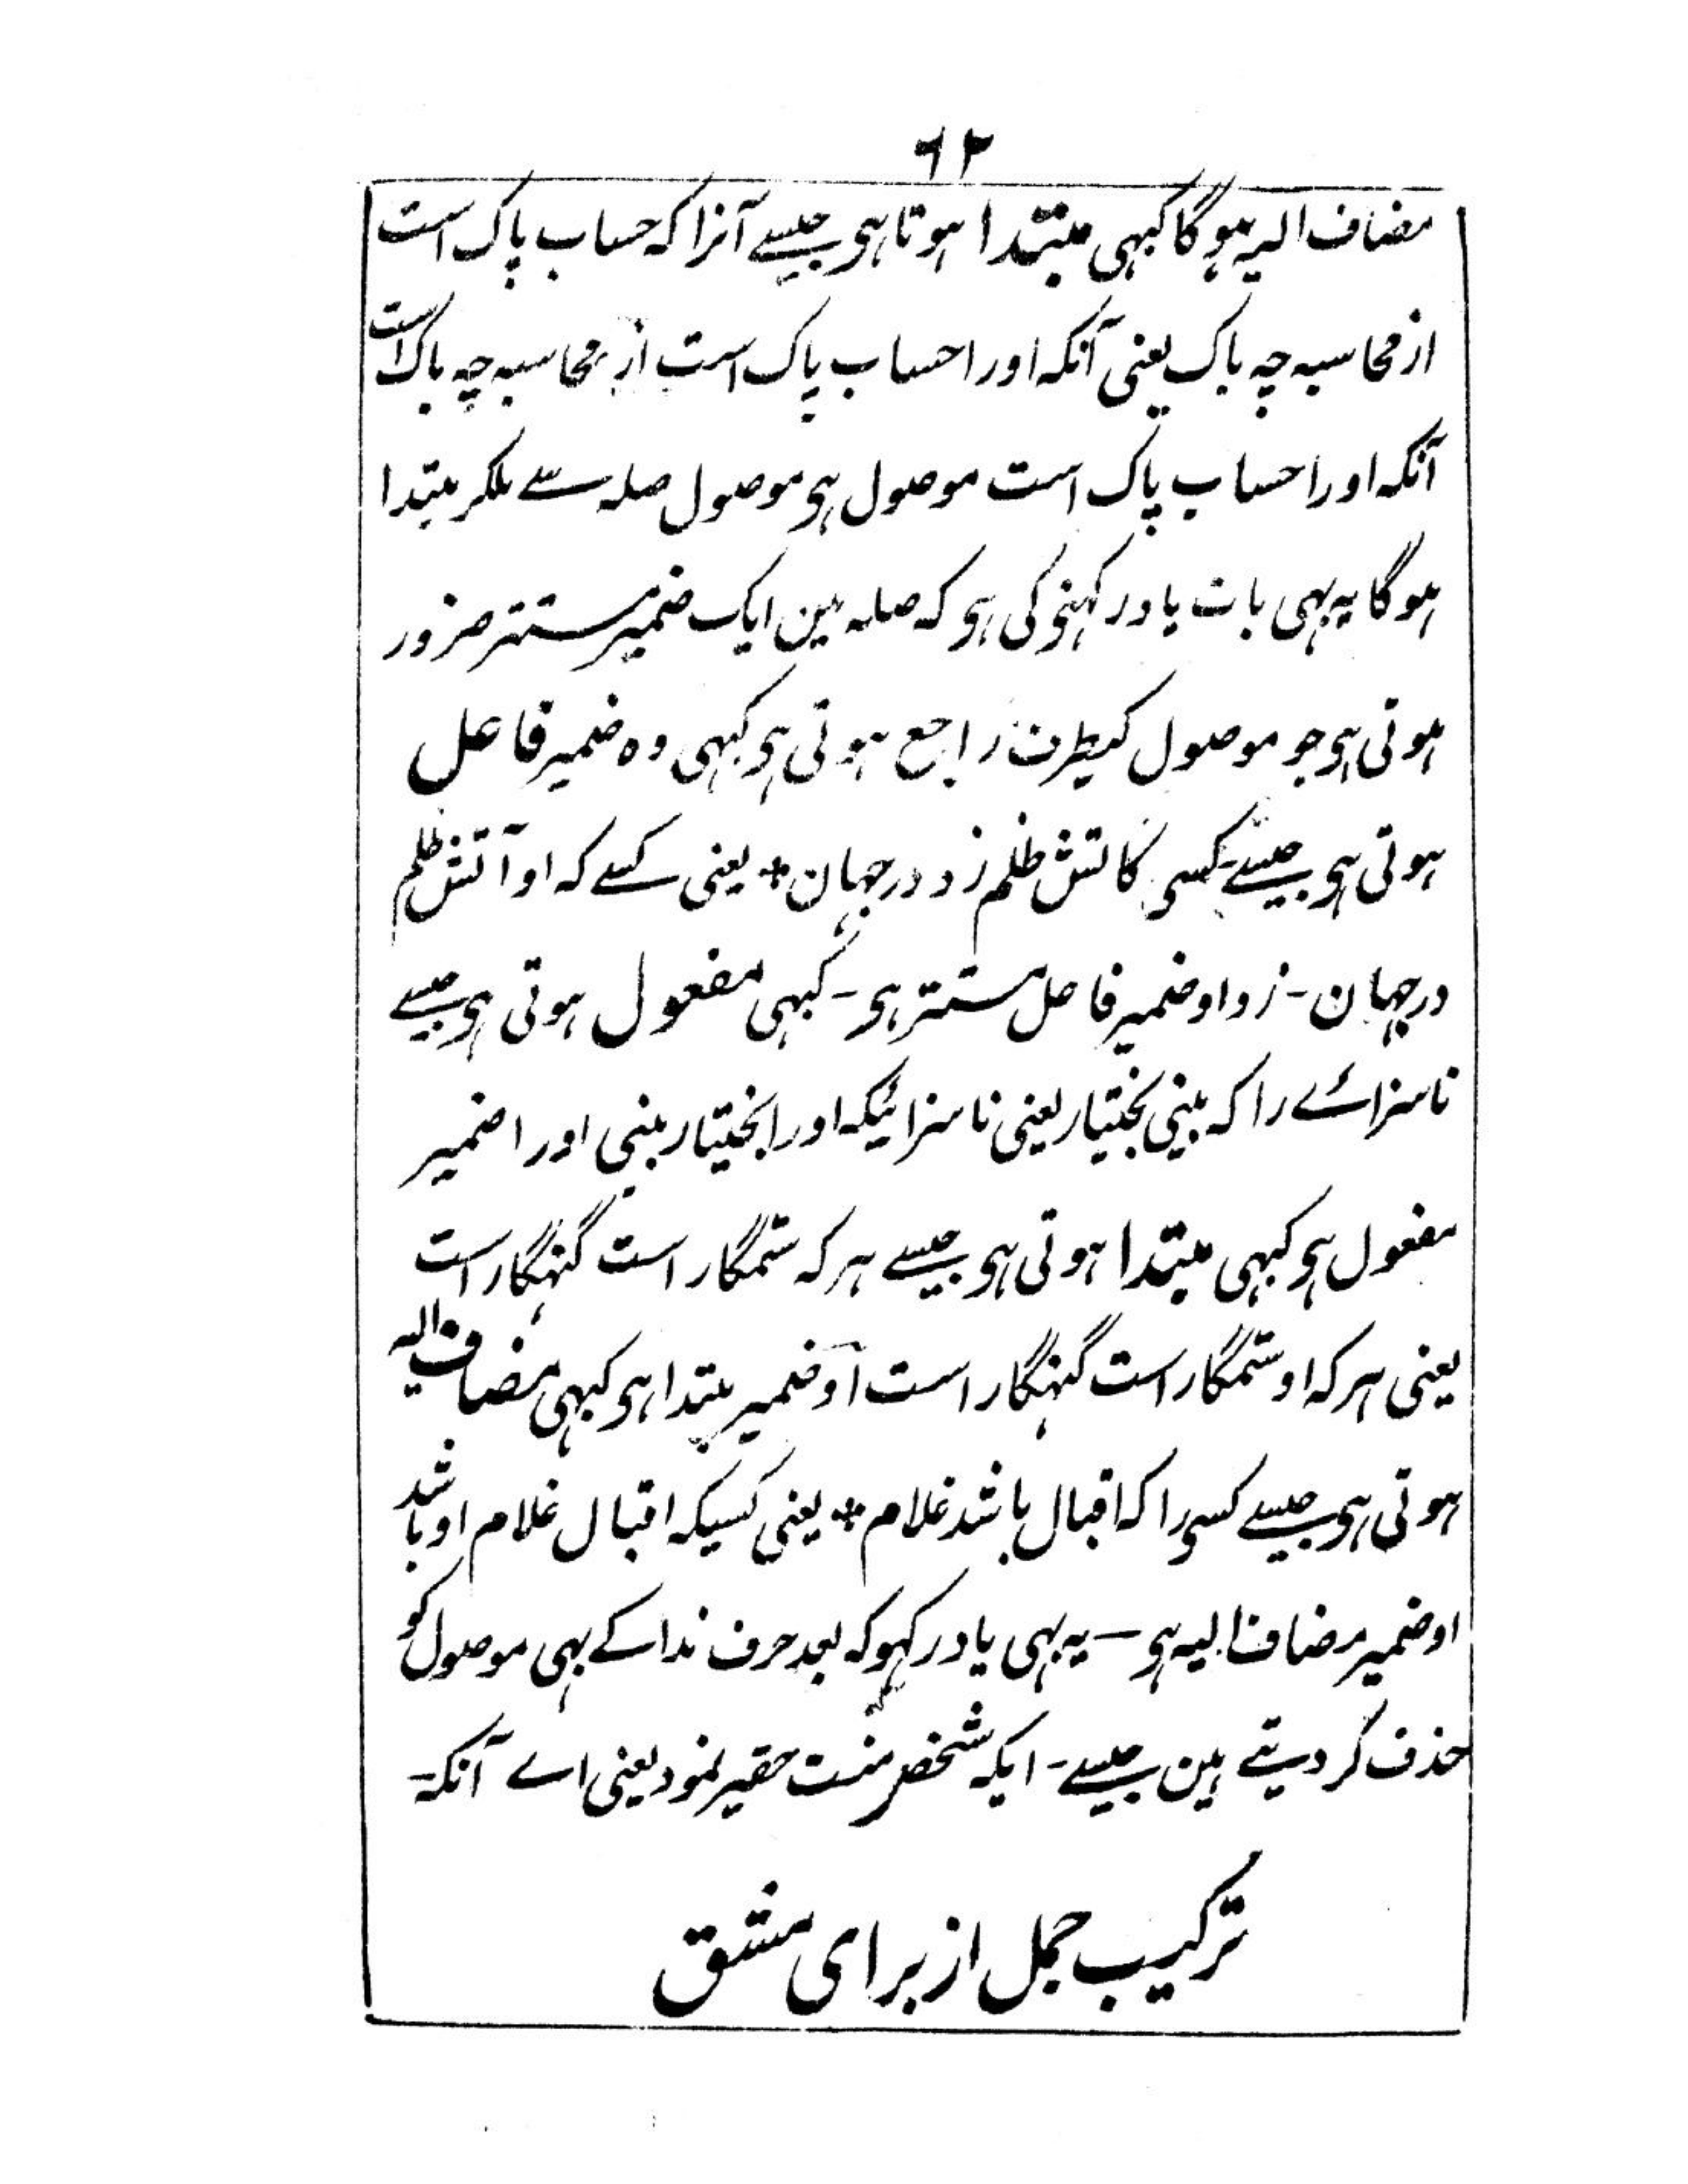 ٦٢
مضاف الیہ ہوگا کبہی مبتدا ہوتا ہی جیسے آنرا کہ حساب پاک است
از محاسبہ چہ باک یعنی آنکہ اورا حساب پاک است از محاسبہ چہ باک است
آنکہ اورا حساب پاک است موصول ہی موصول صلہ سے ملکر مبتدا
ہوگا یہ بہی بات یاد رکہنی کی ہی کہ صلہ مین ایک ضمیر مستتر ضرور
ہوتی ہی جو موصول کیطرف راجع ہوتی ہی کبہی وہ ضمیر فاعل
ہوتی ہی جیسے کسی کاتش ظلم زد در جہان * یعنی کسے کہ او آتش ظلم
در جہان - زد او ضمیر فاعل مستتر ہی - کبہی مفعول ہوتی ہی جیسے
ناسزائے را کہ بینی بختیار یعنی ناسزائیکہ اورا بختیار بینی اورا ضمیر
مفعول ہی کبہی مبتدا ہوتی ہی جیسے ہر کہ ستمگار است گنہگار است
یعنی ہر کہ او ستمگار است گنہگار است او ضمیر مبتدا ہی کبہی مضاف الیہ
ہوتی ہی جیسے کسی را کہ اقبال باشد غلام * یعنی کسیکہ اقبال غلام او باشد
او ضمیر مضاف الیہ ہی - یہ بہی یاد رکہو کہ بعد حرف ندا کے بہی موصول کو
حذف کر دیتے ہین جیسے - ایکہ شخص منت حقیر نمود یعنی اے آنکہ -
ترکیب جمل از برای مشق